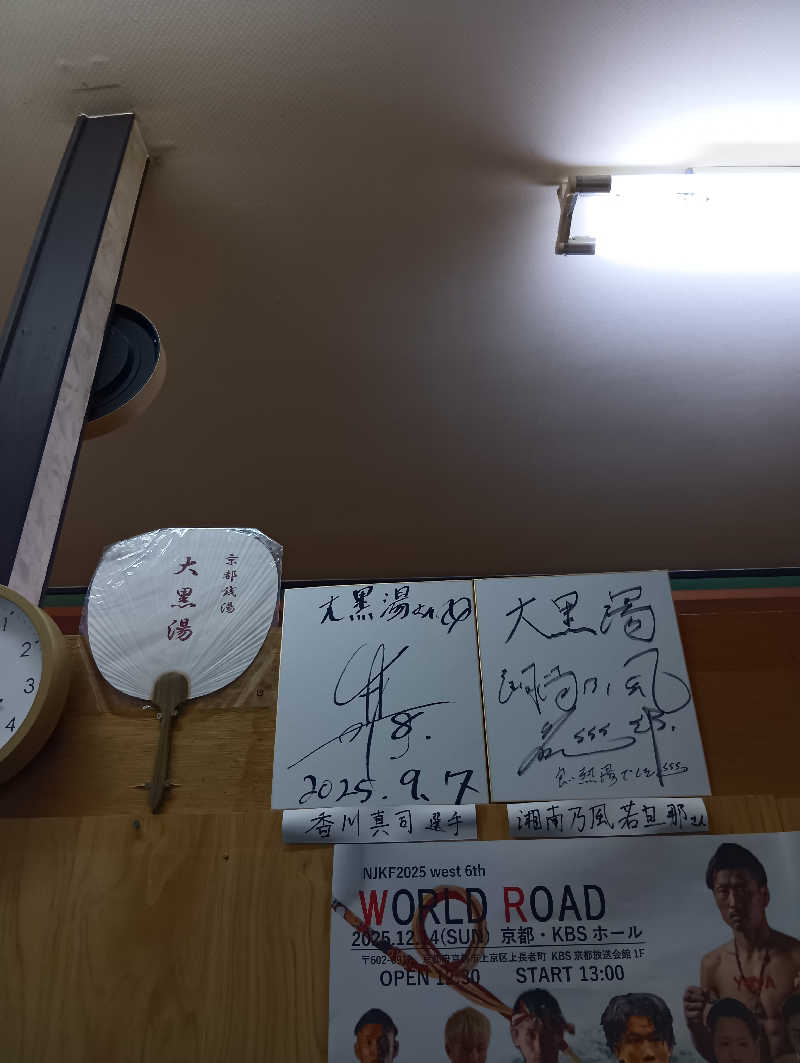 1
2
3
4
京都銭湯
大黒湯
大黒湯さん江
8.
2025.9.7
香川真司選手
大黒湯
湘南乃風
若旦那
香川真司 選手
湘南乃風 若旦那さん
NJKF2025 west 6th
WORLD ROAD
2025.12.14(SUN) 京都・KBSホール
京都府京都市上京区上長者町 KBS京都放送会館 1F
OPEN 12:30 START 13:00